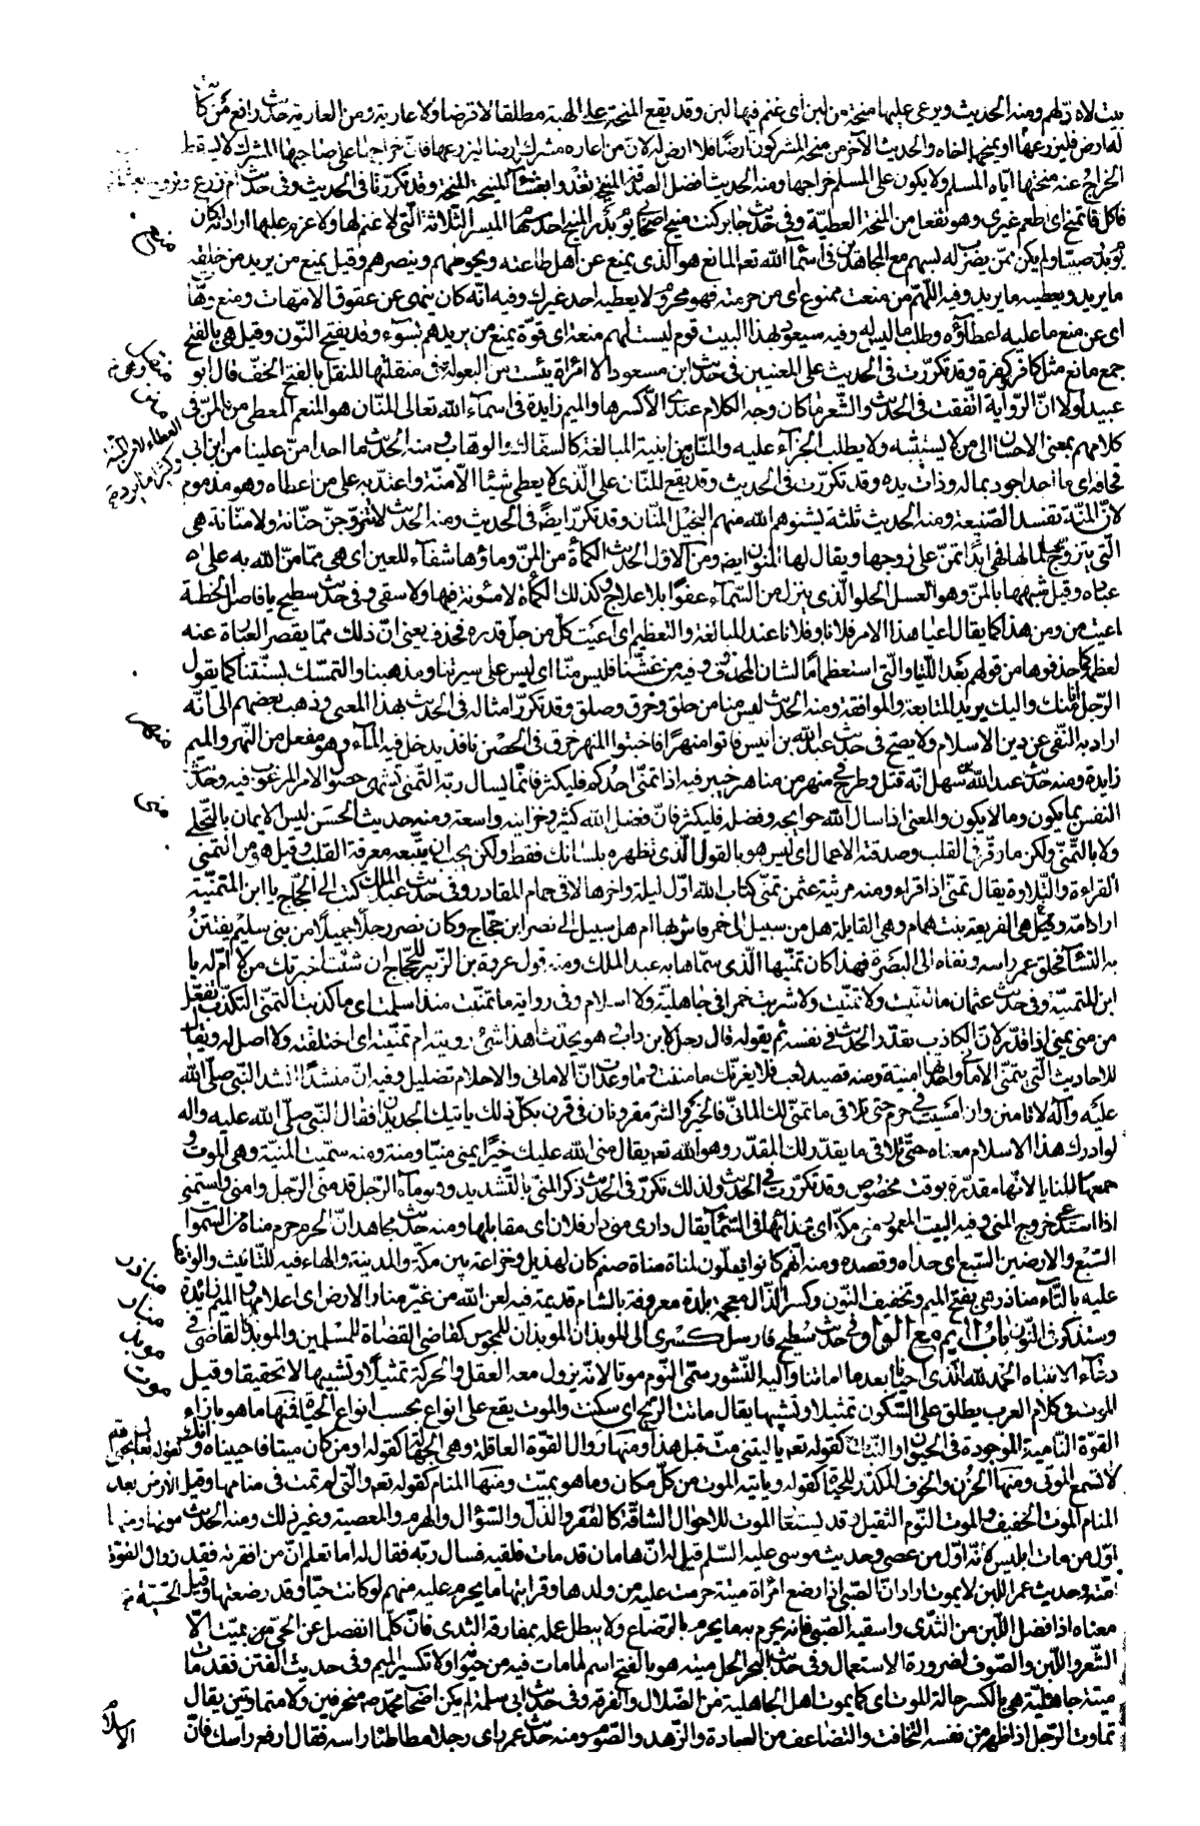 بيت لا درّ لهم ومنه الحديث ويرعى عليها منحة من لبن اى غنم فيها لبن وقد يقع المنحة على الهبة مطلقا لا قرضا ولا عارية ومن العارية حديث رافع من كانت
له ارض فليزرعها او يمنحها اخاه والحديث الآخر من منحه المشركون ارضا فلا ارض له لان من اعاره مشرك ارضا ليزرعها فان خراجها على صاحبها المشرك لا يسقط
الخراج عنه منحتها اياه المسلم ولا يكون على المسلم خراجها ومنه الحديث افضل الصدقة المنيحة تغدوا بعشاء المنيحة المنحة وقد تكررتا فى الحديث وفى حديث ام زرع
فآكل فاتمنح اى اطعم غيرى وهو تفعل من المنحة العطيّة وفى حديث جابر كنت منيح اصحابى يوم بدر المنيح احد سهام الميسر الثلاثة التى لا غنم لها ولا غرم عليها اراد انه كان
يوم بدر صبيا ولم يكن ممّن يضرب له بسهم مع المجاهدين فى اسماء الله تعالى المانع هو الذى يمنع عن اهل طاعته ويحوطهم وينصرهم وقيل يمنع من يريد من خلقه
ما يريد ويعطيه ما يريد وفيه اللهمّ من منعت ممنوع اى من حرمته فهو محروم لا يعطيه احد غيرك وفيه انه كان ينهى عن عقوق الامهات ومنع وهات
اى عن منع ما عليه اعطاؤه وطلب ما ليس له وفيه سيعوذ بهذا البيت قوم ليست لهم منعة اى قوّة يمنع من يريدهم بسوء وقد يفتح النون وقيل هى بالفتح
جمع مانع مثل كافر وكفرة وقد تكررت فى الحديث على المعنيين فى حديث ابن مسعود الا امرأة يئست من البعولة فهى فى منقليها المنقل بالفتح الخفّ قال ابو
عبيد لولا انّ الرواية اتّفقت فى الحديث والشعر ما كان وجه الكلام عندى الا كسرها والميم زايدة فى اسماء الله تعالى المنّان هو المنعم المعطى من المنّ فى
كلامهم بمعنى الاحسان الى من لا يستثيبه ولا يطلب الجزاء عليه والمنان من ابنية المبالغة كالسفّاك والوهاب ومنه الحديث ما احد امنّ علينا من ابن ابى
قحافة اى ما احد اجود بماله وذات يده وقد تكررت فى الحديث وقد يقع المنّان على الذى لا يعطى شيئا الا منّه واعتدّ به على من اعطاه وهو مذموم
لانّ المنّة تفسد الصنيعة ومنه الحديث ثلثة يشنؤهم الله منهم البخيل المنّان وقد تكرر ايضا فى الحديث ومنه الحديث لا تتزوّجنّ حنّانة ولا منّانة هى
التى يتزوّج بها لمالها فهى ابدا تمنّ على زوجها ويقال لها المنون ايض ومن الاول الحديث الكمأة من المنّ وماؤها شفاء للعين اى هى ممّا منّ الله به على
عباده وقيل شبّهها بالمنّ وهو العسل الحلو الذى ينزل من السماء عفوا بلا علاج وكذلك الكمأة لا مؤنة فيها ولا سقى وفى حديث سطيح يا فاصل الخطة
اعيت من ومن هذا كما يقال اعيا هذا الامر فلانا وفلانا عند المبالغة والتعظيم اى اعيت كلّ من جلّ قدره فحذف يعنى انّ ذلك ممّا يقصر العبارة عنه
لعظمه كما حذفوها من قولهم بعد اللتيا والتى استعظاما لشان المحذوف وفيه من غشّنا فليس منّا اى ليس على سيرتنا ومذهبنا والتمسّك بسنّتنا كما يقول
الرجل انا منك واليك يريد المتابعة والموافقة ومنه الحديث ليس منا من حلق وخرق وصلق وقد تكرر امثاله فى الحديث بهذا المعنى وذهب بعضهم الى انه
اراد به النفى عن دين الاسلام ولا يصح فى حديث عبد الله بن انيس فاتوا منهرا فاختبئوا المنهر خرق فى الحصن نافذ يدخل فيه الماء وهو مفعل من النهر والميم
زايدة ومنه حديث عبد الله بن سهل انه قتل وطرح فى منهر من مناهر خيبر فيه اذا تمنّى احدكم فليكثر فانما يسال ربّه التمنى تشهى حصول الامر المرغوب فيه وحديث
النفس بما يكون وما لا يكون والمعنى اذا سال الله حوايجه وفضله فليكثر فانّ فضل الله كثير وخزاينه واسعة ومنه حديث الحسن ليس الايمان بالتحلّى
ولا بالتمنّى ولكن ما وقر فى القلب وصدقته الاعمال اى ليس هو بالقول الذى تظهره بلسانك فقط ولكن يجب ان يتبعه معرفة القلب وقيل هو من التمنى
القراءة والتلاوة يقال تمنى اذا قرا ومنه مرثية عثمن تمنى كتاب الله اوّل ليلة واخرها لاقى حمام المقادر وفى حديث عبد الملك كتب الى الحجّاج يا ابن المتمنّية
اراد امه وهى الفريعة بنت همام وهى القايلة هل من سبيل الى خمر فاشربها ام هل سبيل الى نصر ابن حجاج وكان نصر رجلا جميلا من بنى سليم يفتتن
به النساء فحلق عمر راسه ونفاه الى البصرة فهذا كان تمنّيها الذى سمّاها به عبد الملك ومنه قول عروة بن الزبير للحجّاج ان شئت اخبرتك من لا امّ له يا
ابن المتمنية وفى حديث عثمان ما تغنيت ولا تمنّيت ولا شربت خمرا فى جاهلية ولا اسلام وفى رواية ما تمنّيت منذ اسلمت اى ما كذبت التمنّى التكذّب تفعّل
من منى يمنى اذا قدّر لان الكاذب يقدّر الحديث فى نفسه ثم يقوله قال رجل لابن داب وهو يحدث اهذا شئ رويته ام تمنّيته اى اختلقته ولا اصل له ويقال
للاحاديث التى يتمنى الامانى واحدتها امنية ومنه قصيد كعب فلا يغرنّك ما منّت وما وعدت انّ الامانى والاحلام تضليل وفيه ان منشدا انشد النبى صلى الله
عليه وآله لا تامنن وان امسيت فى حرم حتى تلاقى ما تمنّى لك المانى فالخير والشر مقرونان فى قرن بكلّ ذلك ياتيك الجديدان فقال النبى صلى الله عليه واله
لو ادرك هذا الاسلام معناه حتى تلاقى ما يقدّر لك المقدّر وهو الله تعالى يقال منى الله عليك خيرا يمنى منيا ومنة ومنه سميت المنيّة وهى الموت
جمعها المنايا لانها مقدّرة بوقت مخصوص وقد تكررت فى الحديث ولذلك تكرر فى الحديث ذكر المنى بالتشديد وهو ماء الرجل قد منى الرجل وامنى واستمنى
اذا استدعى خروج المنى وفيه البيت المعمور منى مكة اى بحذائها فى السماء يقال دارى منى دار فلان اى مقابلها ومنه حديث مجاهد انّ الحرم حرم مناه من السموات
السبع والارضين السبع اى حذاه وقصده ومنه انهم كانوا يهلّون لمناة مناة صنم كان لهذيل وخزاعة بين مكة والمدينة والهاء فيه للتانيث والوقف
عليه بالتاء مناذر هى بفتح الميم وتخفيف النون وكسر الذال معجمة بلدة معروفة بالشام قديمة فيه لعن الله من غيّر منار الارض اى اعلامها والميم زائدة
وستذكر فى النون باب الميم مع الواو فى حديث سطيح فارسل كسرى الى الموبذان الموبذان للمجوس كقاضى القضاة للمسلمين والموبذ كالقاضى فى
دعاء الانتباه الحمد لله الذى احيانا بعد ما اماتنا واليه النشور سمّى النوم موتا لانه يزول معه العقل والحركة تمثيلا وتشبيها لا تحقيقا وقيل
الموت فى كلام العرب يطلق على السكون تمثيلا وتشبيها يقال ماتت الريح اى سكنت والموت يقع على انواع بحسب انواع الحياة فمنها ما هو بازاء
القوة النامية الموجودة فى الحيوان والنبات كقوله تعالى يا ليتنى متّ قبل هذا ومنها زوال القوة العاقلة وهى الجهالة كقوله او من كان ميتا فاحييناه و
لا تسمع الموتى ومنها الحزن والخوف المكدّر للحياة كقوله وياتيه الموت من كلّ مكان وما هو بميّت ومنها المنام كقوله تعالى والتى لم تمت فى منامها وقيل
المنام الموت الخفيف والموت النوم الثقيل وقد يستعار الموت للاحوال الشاقّة كالفقر والذل والسؤال والهرم والمعصية وغير ذلك ومنه الحديث
اوّل من مات ابليس لانه اوّل من عصى وحديث موسى عليه السلم قيل له انّ هامان قد مات فلقيه فسال ربّه فقال له اما تعلم انّ من افقرته فقد
امتّه وحديث عمر اللبن لا يموت اراد انّ الصبى اذا رضع امراة ميتة حرمت عليه من ولدها وقرابتها ما يحرم عليه منهم لو كانت حيّا وقد رضعها وقيل
معناه اذا فصل اللبن من الثدى واسقيه الصبى فانه يحرم به ما يحرم بالرضاع ولا يبطل عمله بمفارقة الثدى فانّ كلّما انفصل عن الحىّ فهو ميّت الّا
الشعر واللبن والصوف لضرورة الاستعمال وفى حديث البحر الحل ميتته هو بالفتح اسم لما مات فيه من حيوانه ولا تكسر الميم وفى حديث الفتن فقد مات
ميتة جاهليّة هى بالكسر حالة الموت اى كما يموت اهل الجاهلية من الضلال والفرقة وفى حديث ابى سلمة لم يكن اصحاب محمد ص متحزقين ولا متماوتين يقال
تماوت الرجل اذا اظهر من نفسه التخافت والتضاعف من العبادة والزهد والصوم ومنه حديث عمر راى رجلا مطاطئا راسه فقال ارفع راسك فانّ
منع
منهر
منى
مناذر
منار
موبذ
موت
الاسلام